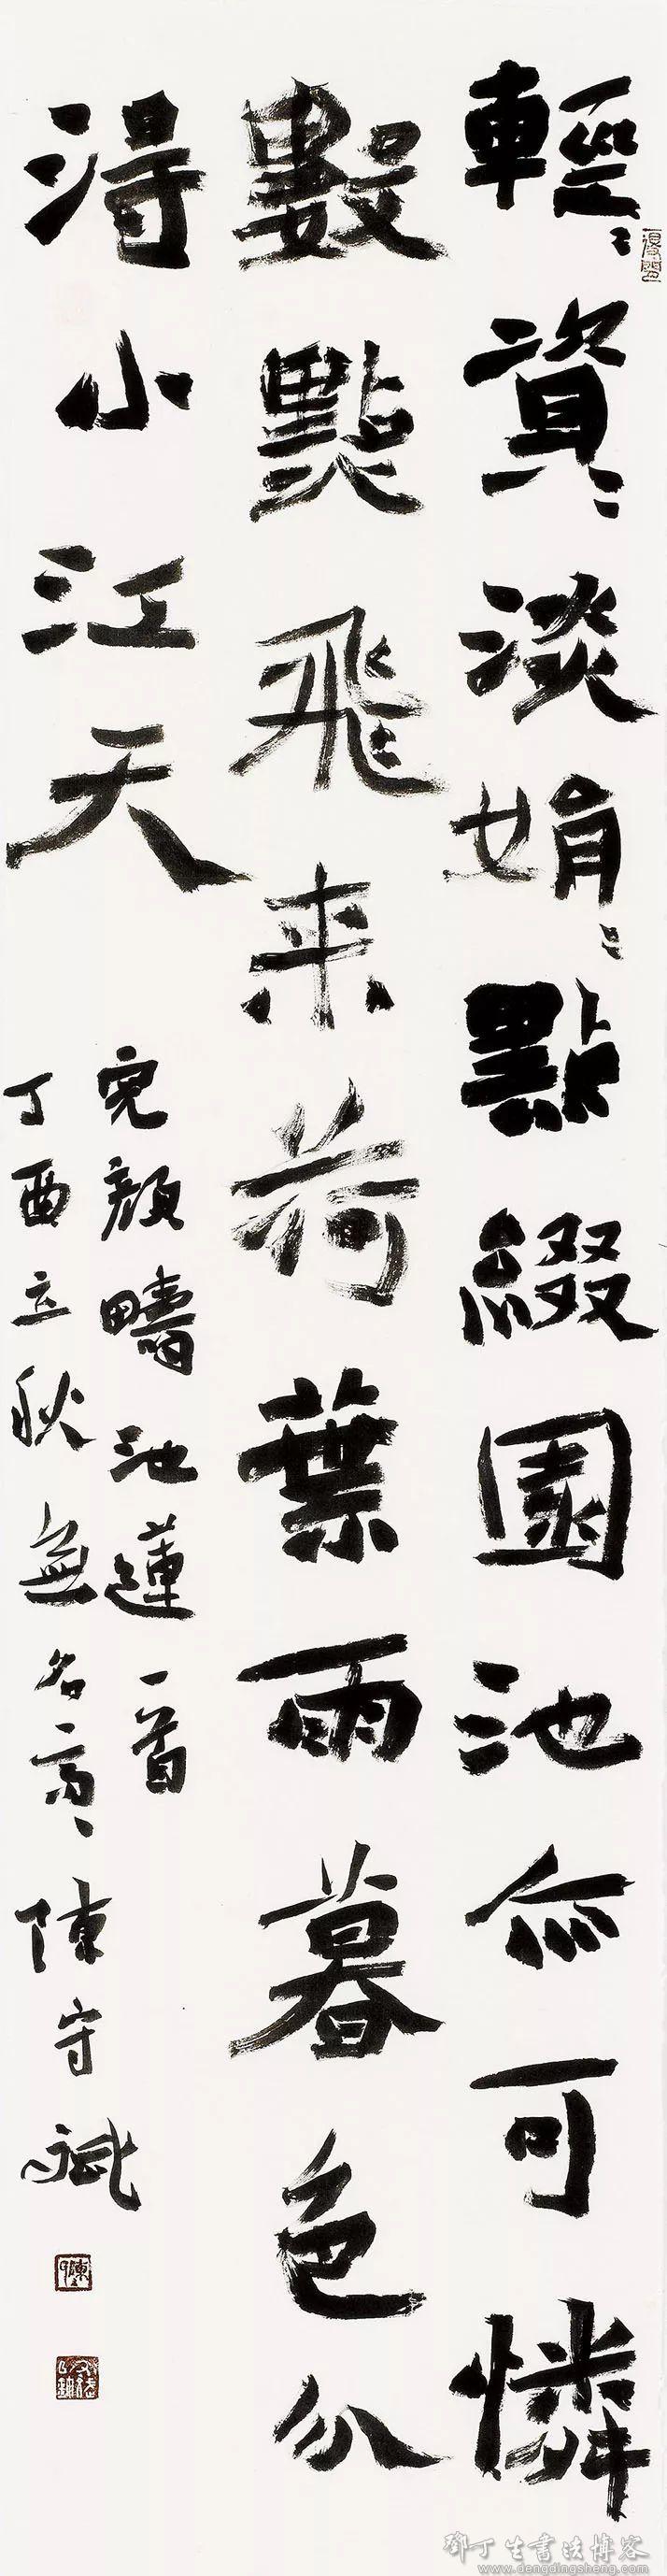 輕〻資〻淡娟〻點綴園池亦可憐
數點飛来荷葉雨暮色分
得小江天
完顏疇池蓮一首
丁酉立秋無名齋陳守斌
鄧丁生書法博客
www.dengdingsheng.com